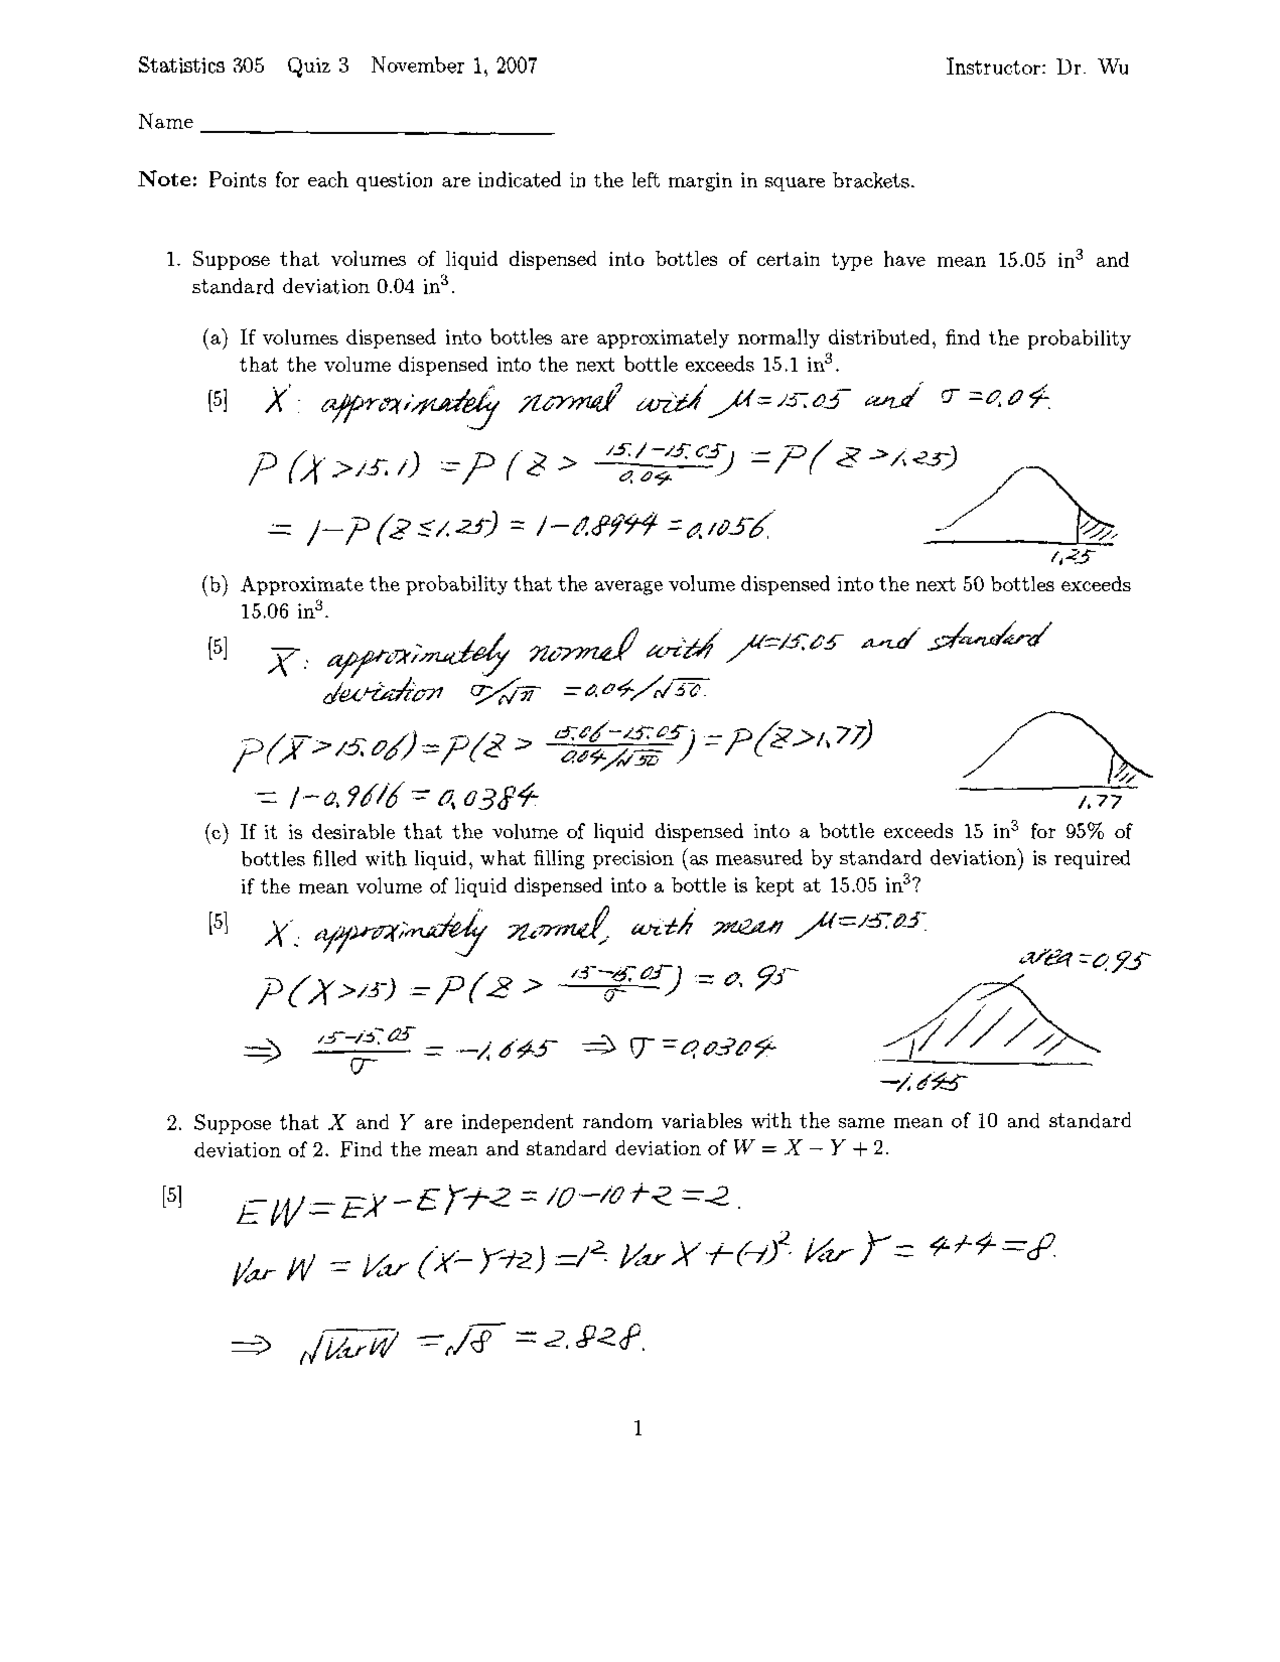 Statistics 305 Quiz 3 November 1, 2007 Instructor: Dr. Wu
Name
Note: Points for each question are indicated in the left margin in square brackets.
1. Suppose that volumes of liquid dispensed into bottles of certain type have mean 15.05 in³ and
standard deviation 0.04 in³.
(a) If volumes dispensed into bottles are approximately normally distributed, find the probability
that the volume dispensed into the next bottle exceeds 15.1 in³.
[5] X: approximately normal with μ=15.05 and σ=0.04.
P(X>15.1) = P(Z > (15.1-15.05)/0.04) = P(Z>1.25)
= 1-P(Z≤1.25) = 1-0.8944 = 0.1056.
1.25
(b) Approximate the probability that the average volume dispensed into the next 50 bottles exceeds
15.06 in³.
[5] X̄: approximately normal with μ=15.05 and standard
deviation σ/√n = 0.04/√50.
P(X̄>15.06)=P(Z > (15.06-15.05)/(0.04/√50)) = P(Z>1.77)
= 1-0.9616 = 0.0384
1.77
(c) If it is desirable that the volume of liquid dispensed into a bottle exceeds 15 in³ for 95% of
bottles filled with liquid, what filling precision (as measured by standard deviation) is required
if the mean volume of liquid dispensed into a bottle is kept at 15.05 in³?
[5] X: approximately normal, with mean μ=15.05.
area=0.95
P(X>15) = P(Z > (15-15.05)/σ) = 0.95
⇒ (15-15.05)/σ = -1.645 ⇒ σ=0.0304
-1.645
2. Suppose that X and Y are independent random variables with the same mean of 10 and standard
deviation of 2. Find the mean and standard deviation of W = X − Y + 2.
[5] EW=EX-EY+2=10-10+2=2.
Var W = Var (X-Y+2)=1²·Var X+(-1)²·Var Y = 4+4=8.
⇒ √VarW = √8 = 2.828.
1